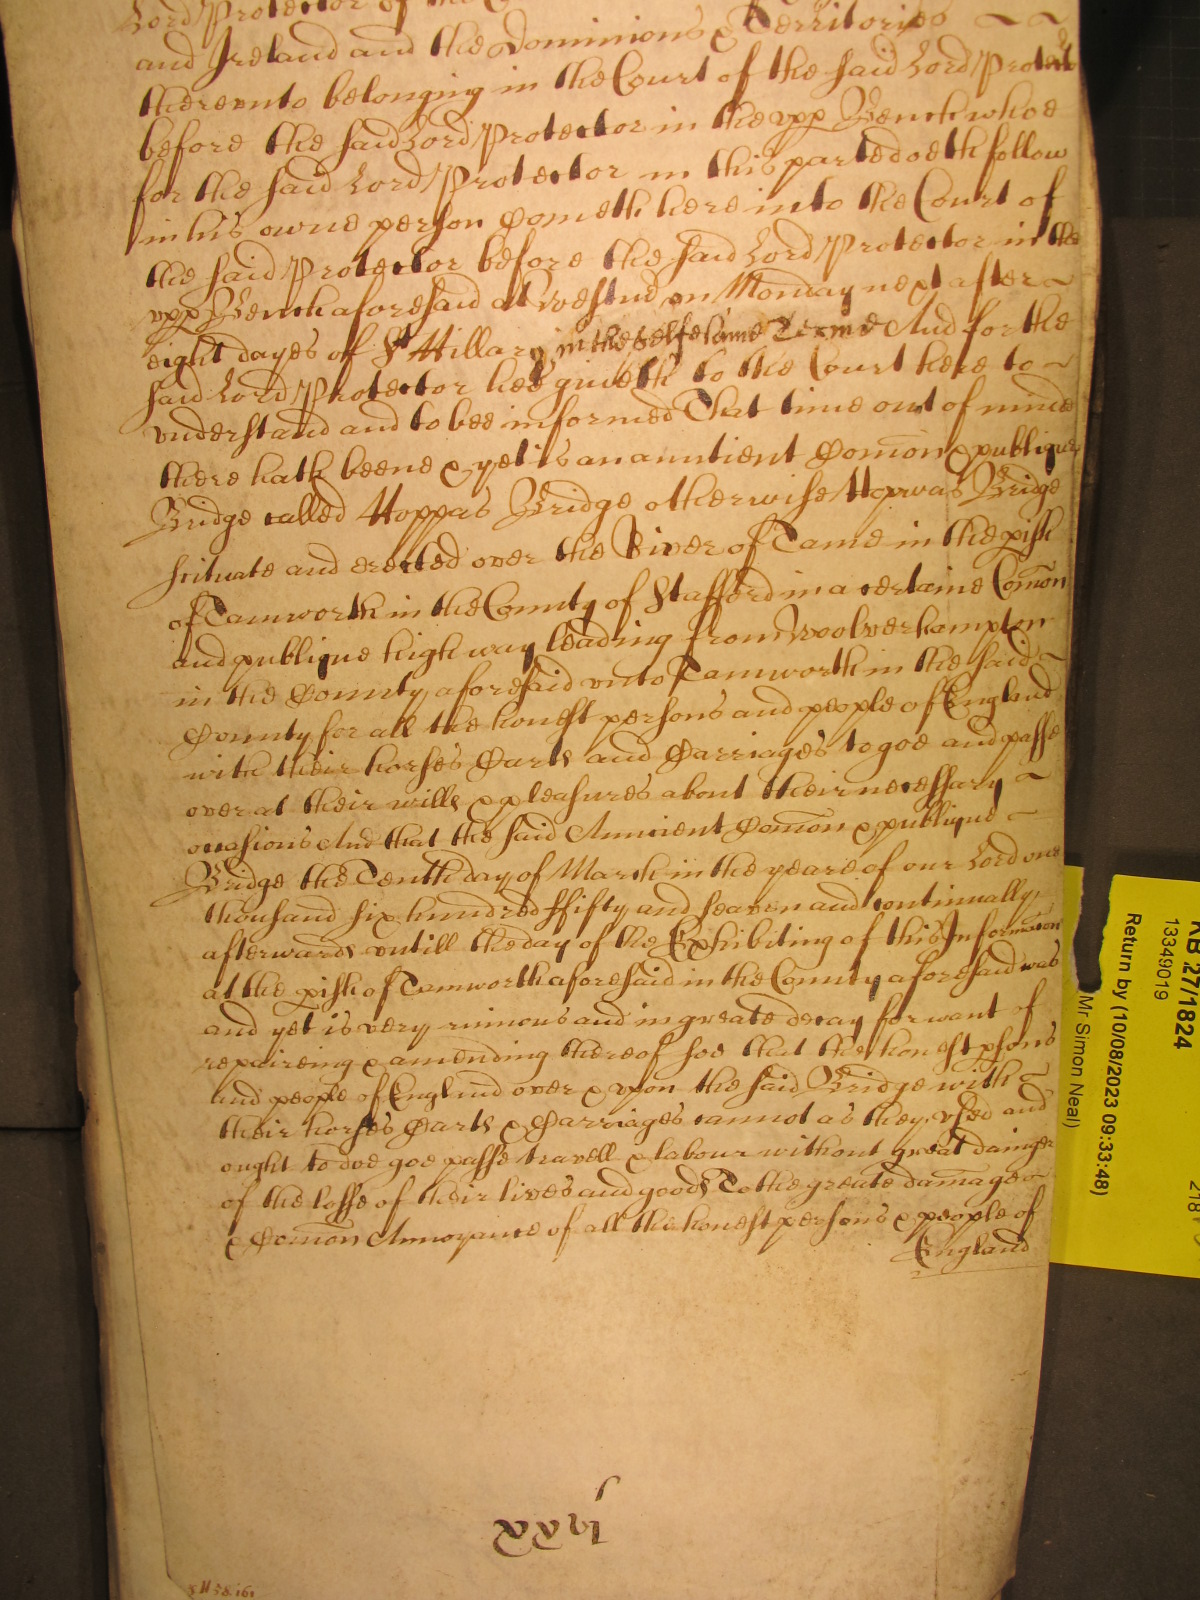 Lord Protector of the
and Ireland and the Dominions & Territories
thereunto belonging in the Court of the said Lord Protector
before the said Lord Protector in the upp Bench whoe
for the said Lord Protector in this parte doeth follow
in his owne person Cometh here into the Court of
the said Protector before the said Lord Protector in the
upp Bench aforesaid at Westm on Monday next after
eight dayes of St Hillary in the selfe same Terme And for the
said Lord Protector hee giveth to the Court here to
understand and to bee informed That time out of minde
there hath beene & yet is an auntient Comon & publique
Bridge called Hoppas Bridge otherwise Hopwas Bridge
scituate and erected over the River of Tame in the pish
of Tamworth in the County of Stafford in a certaine Comon
and publique high way leading from Woolverhampton
in the County aforesaid unto Tamworth in the said
County for all the honest persons and people of England
with their horses Carts and Carriages to goe and passe
over at their wills & pleasures about their necessary
occasions And that the said Auncient Comon & publique
Bridge the Tenth day of March in the yeare of our Lord one
thousand six hundred ffifty and seaven and continually
afterwards untill the day of the Exhibiting of this Informacon
at the pish of Tamworth aforesaid in the County aforesaid was
and yet is very ruinous and in greate decay for want of
repaireing & amending thereof soe that the honest psons
and people of England over & upon the said Bridge with
their horses Carts & Carriages cannot as they used and
ought to doe goe passe travell & labour without great dainger
of the losse of their lives and goods To the greate damage
& Comon Annoyance of all the honest persons & people of
England
KB 27/1824
13349019
Return by (10/08/2023 09:33:48)
Mr Simon Neal)